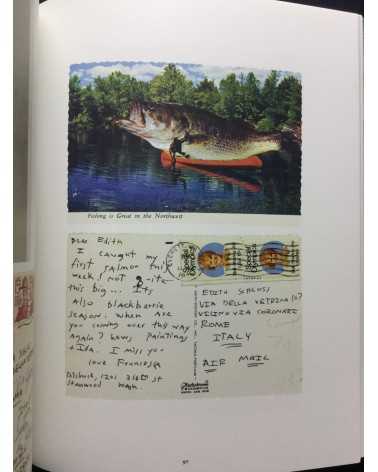 Fishing is Great in the Northwest
Dear Edith
I caught my
first salmon this
week! Not quite
this big... Its
also blackberrie
season. When are
you coming over this way
again? Hows paintings
+ Ida. I miss you
love Francesca
Stanwood Wash.
EDITH SCHLOSS
VIA DELLA VETRINA
VICINO VIA CORONARI
ROME
ITALY
AIR MAIL
97